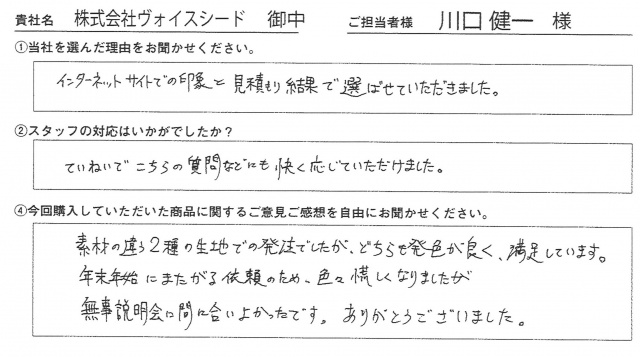 貴社名 株式会社ヴォイスシード 御中 ご担当者様 川口 健一 様
①当社を選んだ理由をお聞かせください。
インターネットサイトでの印象と見積もり結果で選ばせていただきました。
②スタッフの対応はいかがでしたか？
ていねいでこちらの質問などにも快く応じていただけました。
④今回購入していただいた商品に関するご意見ご感想を自由にお聞かせください。
素材の違う2種の生地での発注でしたが、どちらも発色が良く、満足しています。
年末年始にまたがる依頼のため、色々慌しくなりましたが
無事説明会に間に合いよかったです。ありがとうございました。